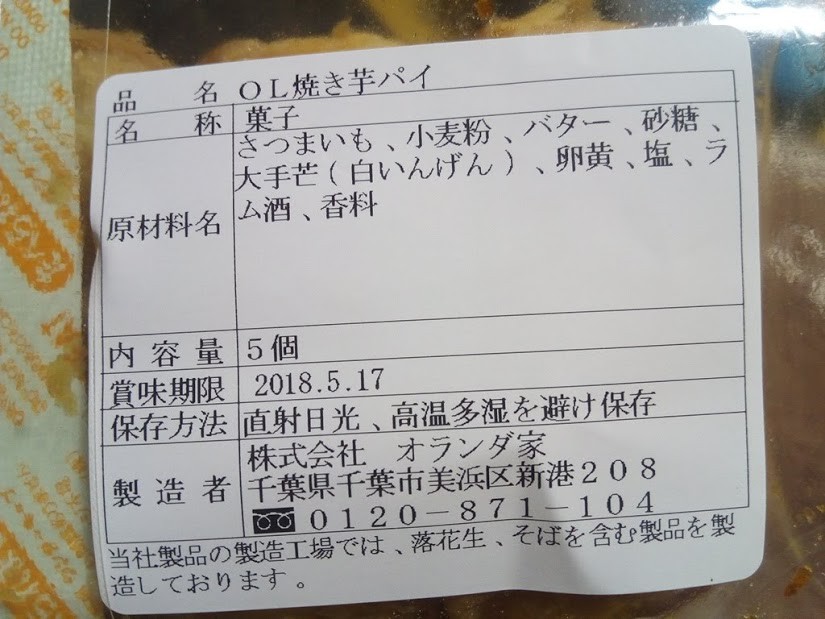 品名 OL焼き芋パイ
名称 菓子
原材料名 さつまいも、小麦粉、バター、砂糖、
大手芒(白いんげん)、卵黄、塩、ラ
ム酒、香料
内容量 5個
賞味期限 2018.5.17
保存方法 直射日光、高温多湿を避け保存
製造者 株式会社 オランダ家
千葉県千葉市美浜区新港208
0120-871-104
当社製品の製造工場では、落花生、そばを含む製品を製
造しております。